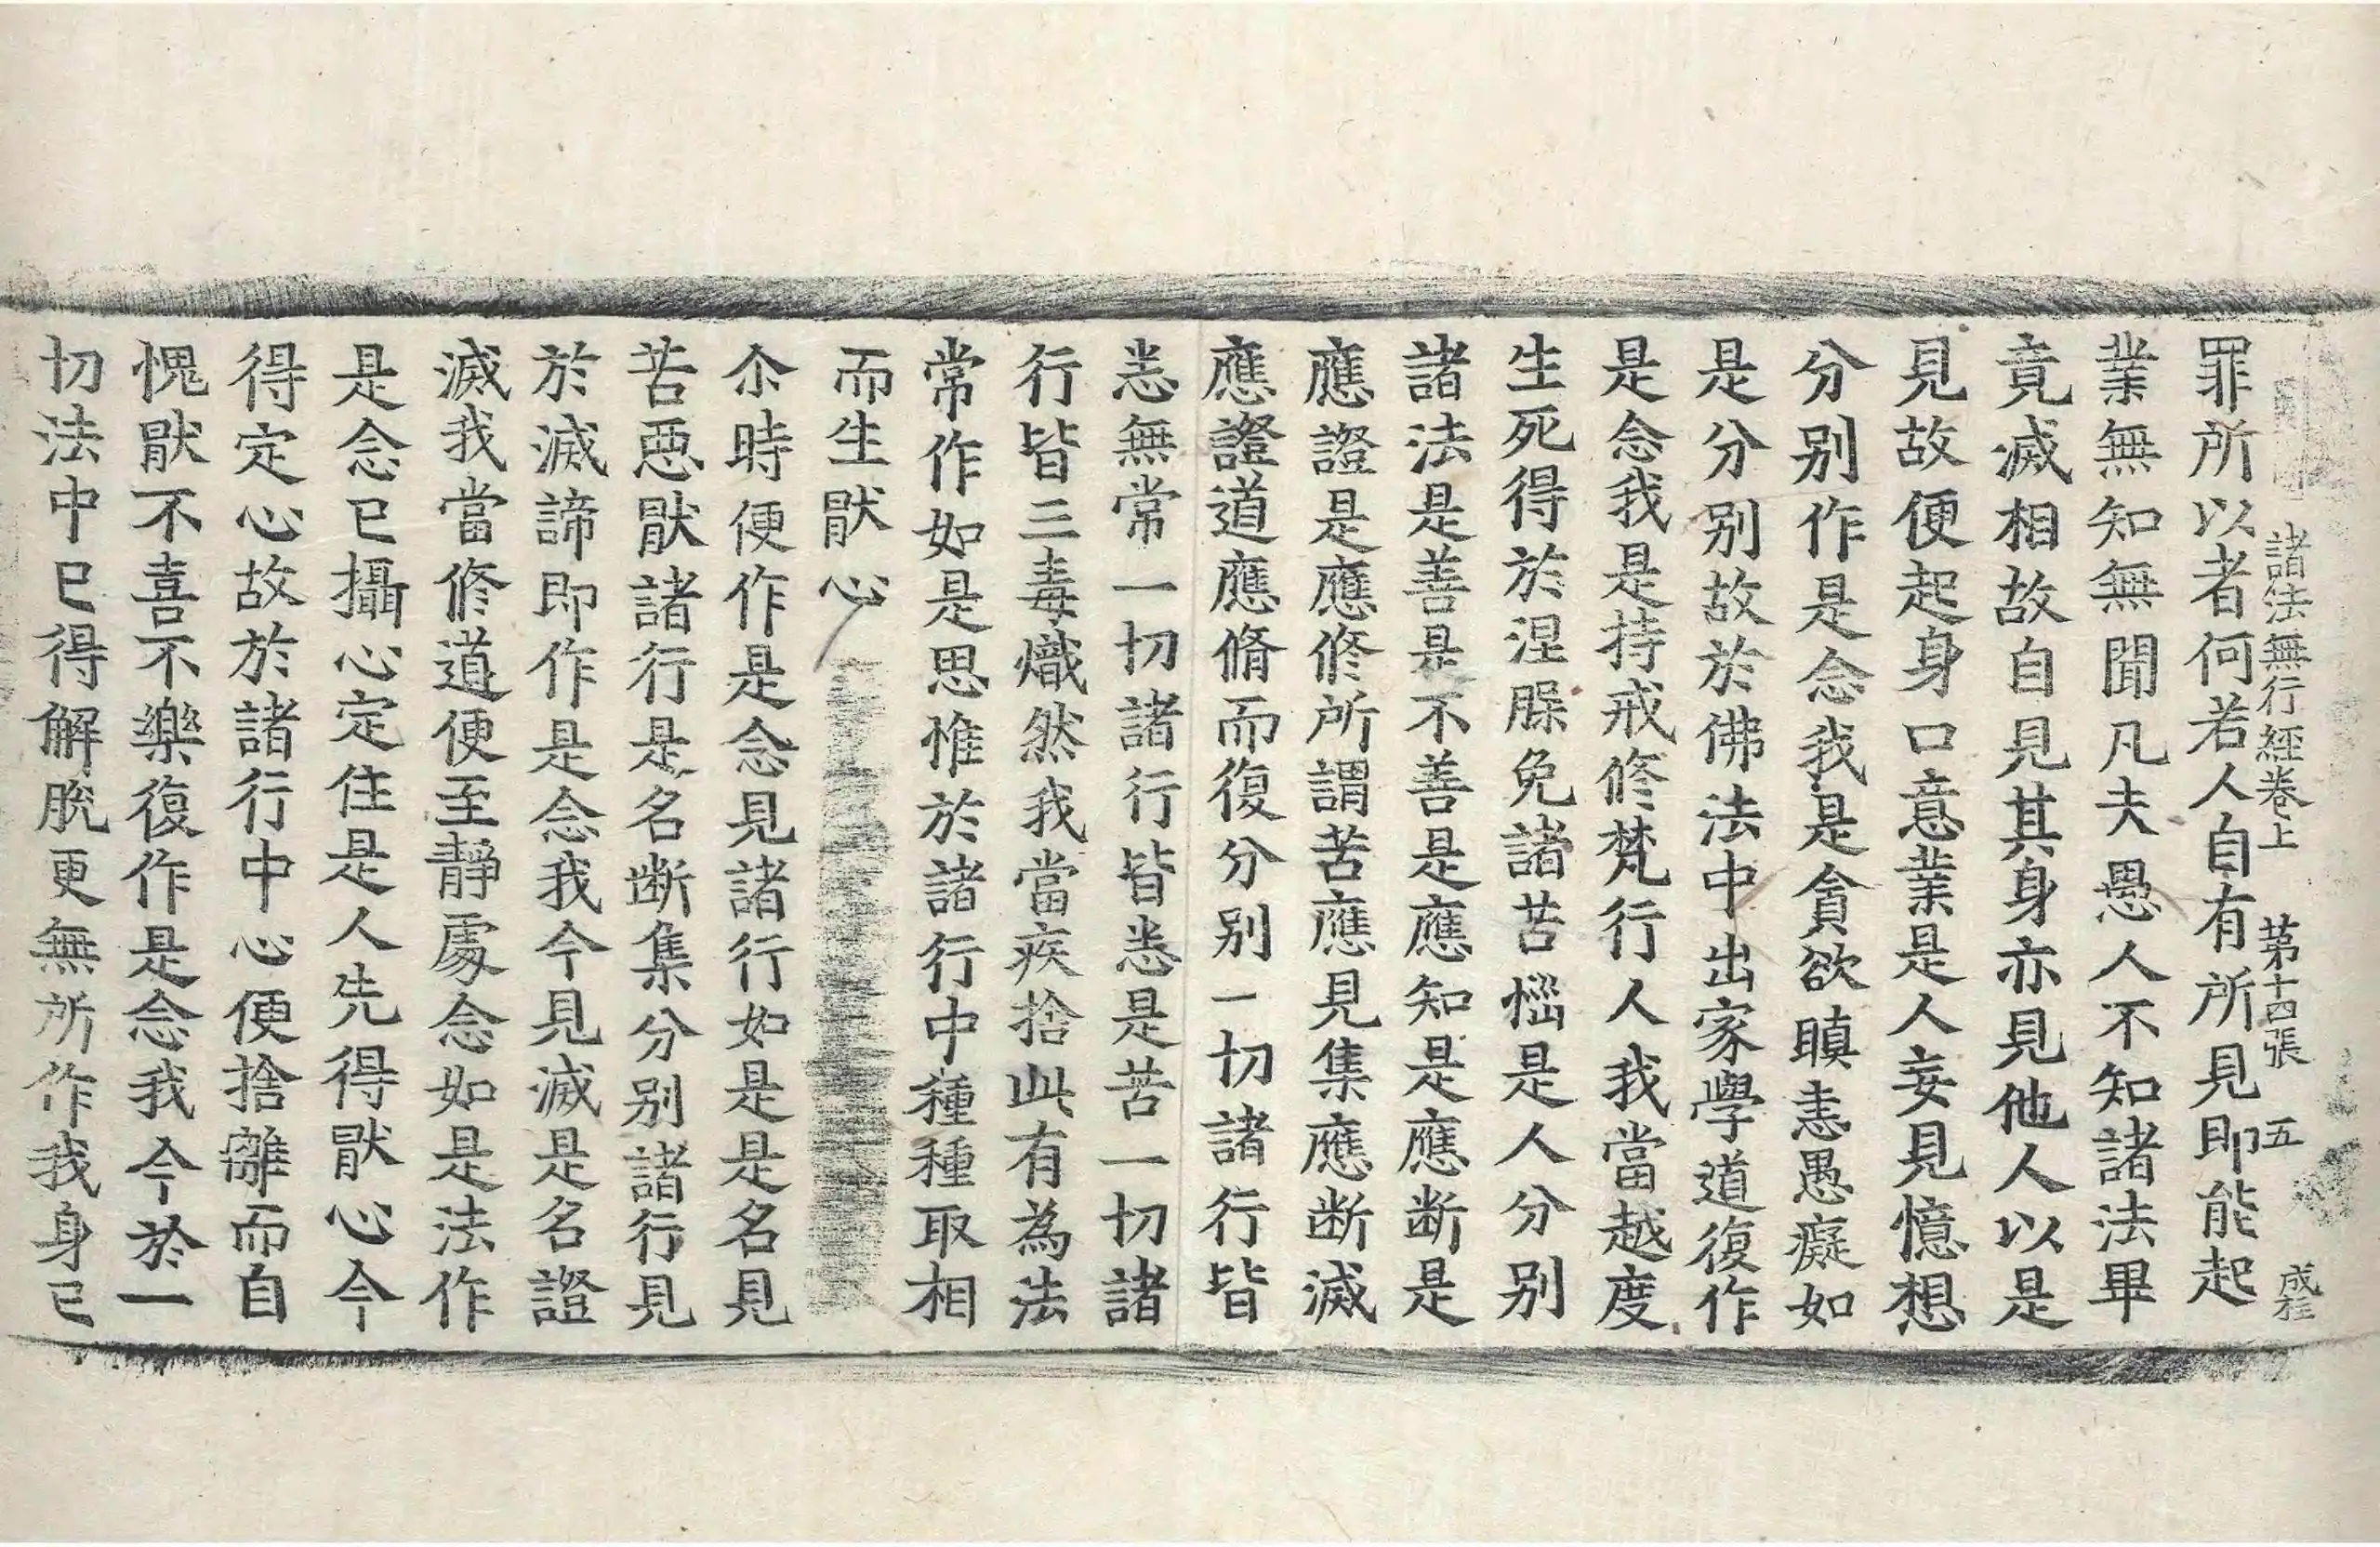 諸法無行經卷上 第十四張 五 成桂
罪所以者何若人自有所見即能起
業無知無聞凡夫愚人不知諸法畢
竟滅相故自見其身亦見他人以是
見故便起身口意業是人妄見憶想
分別作是念我是貪欲瞋恚愚癡如
是分別故於佛法中出家學道復作
是念我是持戒修梵行人我當越度
生死得於涅脲免諸苦惱是人分別
諸法是善是不善是應知是應断是
應證是應修所謂苦應見集應断滅
應證道應脩而復分別一切諸行皆
悉無常一切諸行皆悉是苦一切諸
行皆三毒熾然我當疾捨此有為法
常作如是思惟於諸行中種種取相
而生猒心
尒時便作是念見諸行如是是名見
苦惡猒諸行是名断集分別諸行見
於滅諦即作是念我今見滅是名證
滅我當修道便至靜處念如是法作
是念已攝心定住是人先得猒心今
得定心故於諸行中心便捨離而自
愧猒不喜不樂復作是念我今於一
切法中已得解脫更無所作我身已